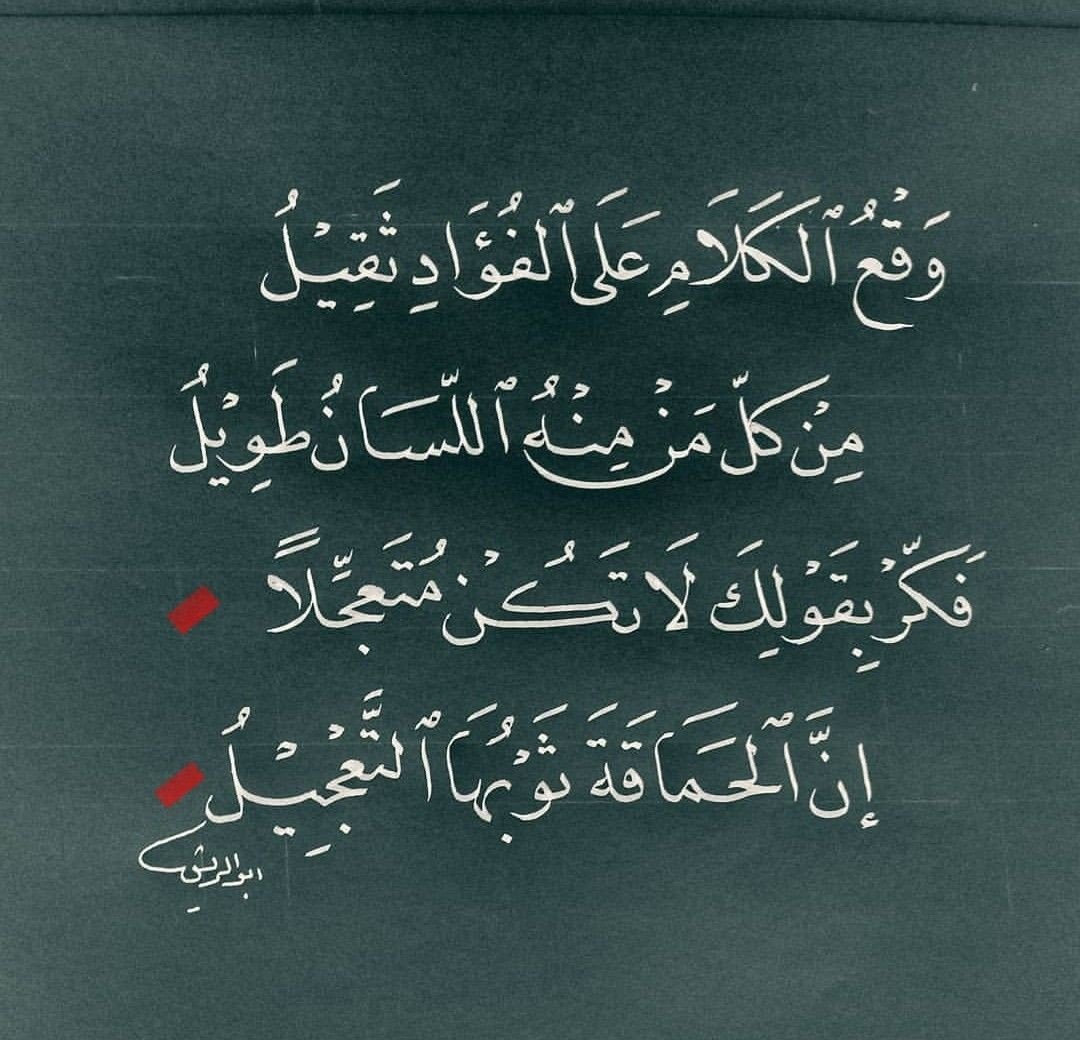 وَقْعُ ٱلْكَلَامِ عَلَى ٱلفُؤَادِ ثَقِيْلُ
مِنْ كلّ مَنْ مِنْهُ ٱللّسَانُ طَوِيْلُ
فَكّرْ بِقَوْلِكَ لَا تَكُنْ مُتَعجِّلاً
إنَّ ٱلحَمَاقَةَ ثَوْبُهَا ٱلتَّعْجِيْلُ
ابو الريش